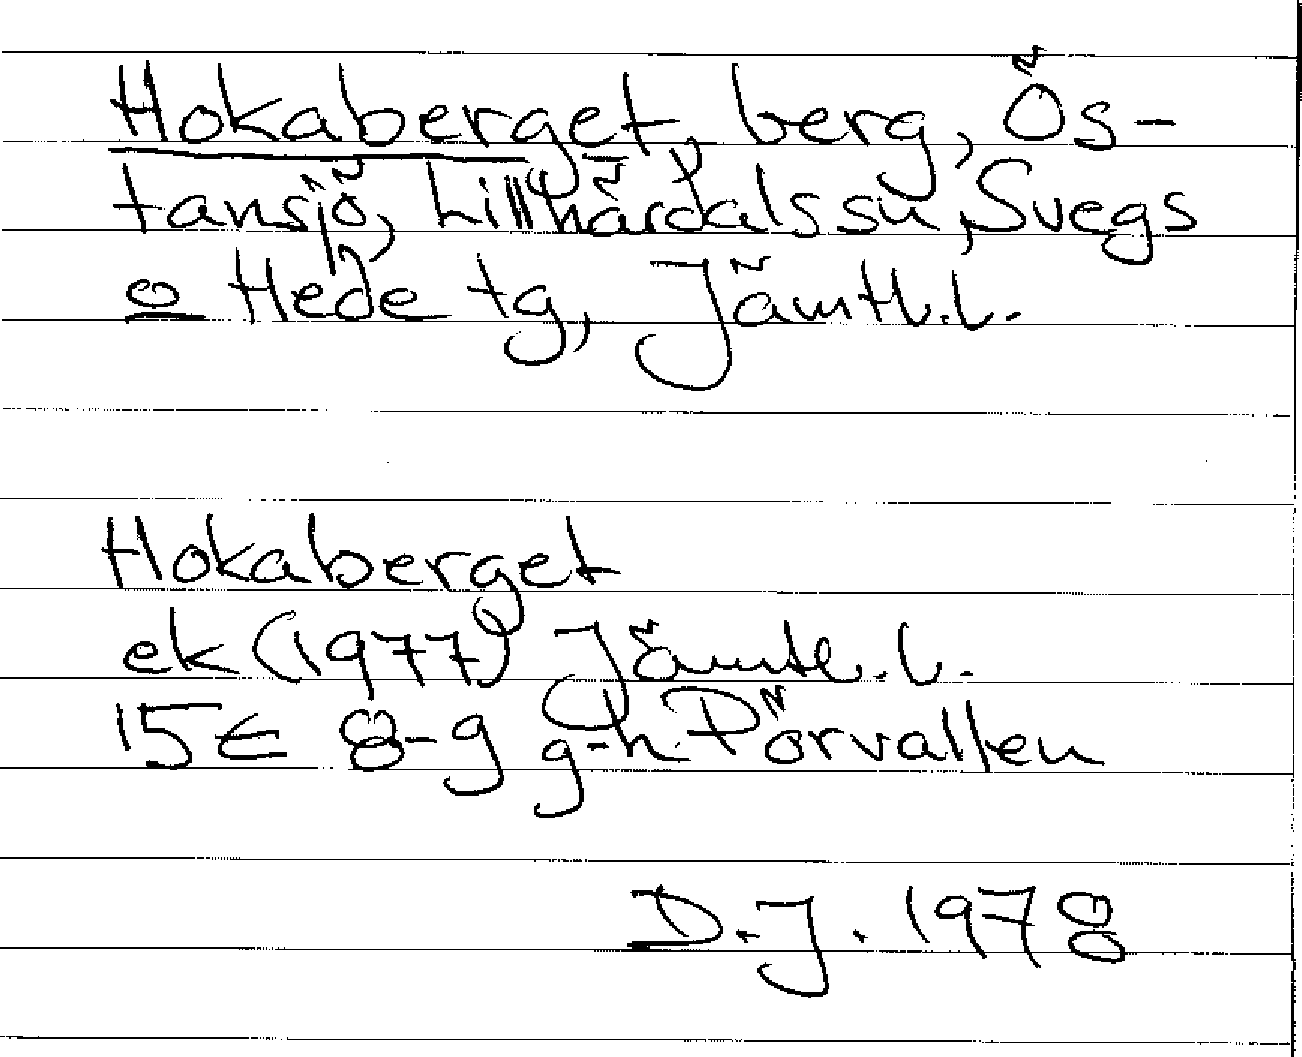 Hokaberget, berg, Ös-
tansjö, Lillhärdals sn, Svegs
o Hede tg, Jämtl. l.
Hokaberget
ek (1977) Jämtl. l.
15E 8-9 g-h. Pörvallen
D.J. 1978